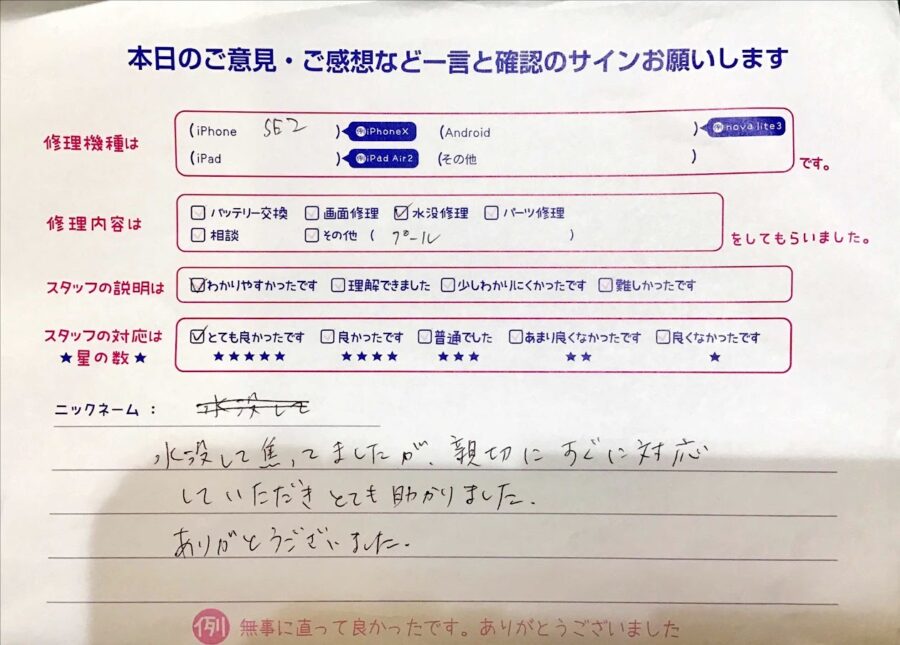 本日のご意見・ご感想など一言と確認のサインお願いします
修理機種は (iPhone SE2 ) 例iPhoneX (Android ) 例nova lite3
(iPad ) 例iPad Air2 (その他 ) です。
修理内容は バッテリー交換 画面修理 水没修理 パーツ修理
相談 その他 ( プール ) をしてもらいました。
スタッフの説明は わかりやすかったです 理解できました 少しわかりにくかったです 難しかったです
スタッフの対応は とても良かったです 良かったです 普通でした あまり良くなかったです 良くなかったです
★星の数★ ★★★★★ ★★★★ ★★★ ★★ ★
ニックネーム: 水没して
水没して焦ってましたが、親切にすぐに対応
していただきとても助かりました.
ありがとうございました.
例 無事に直って良かったです。ありがとうございました